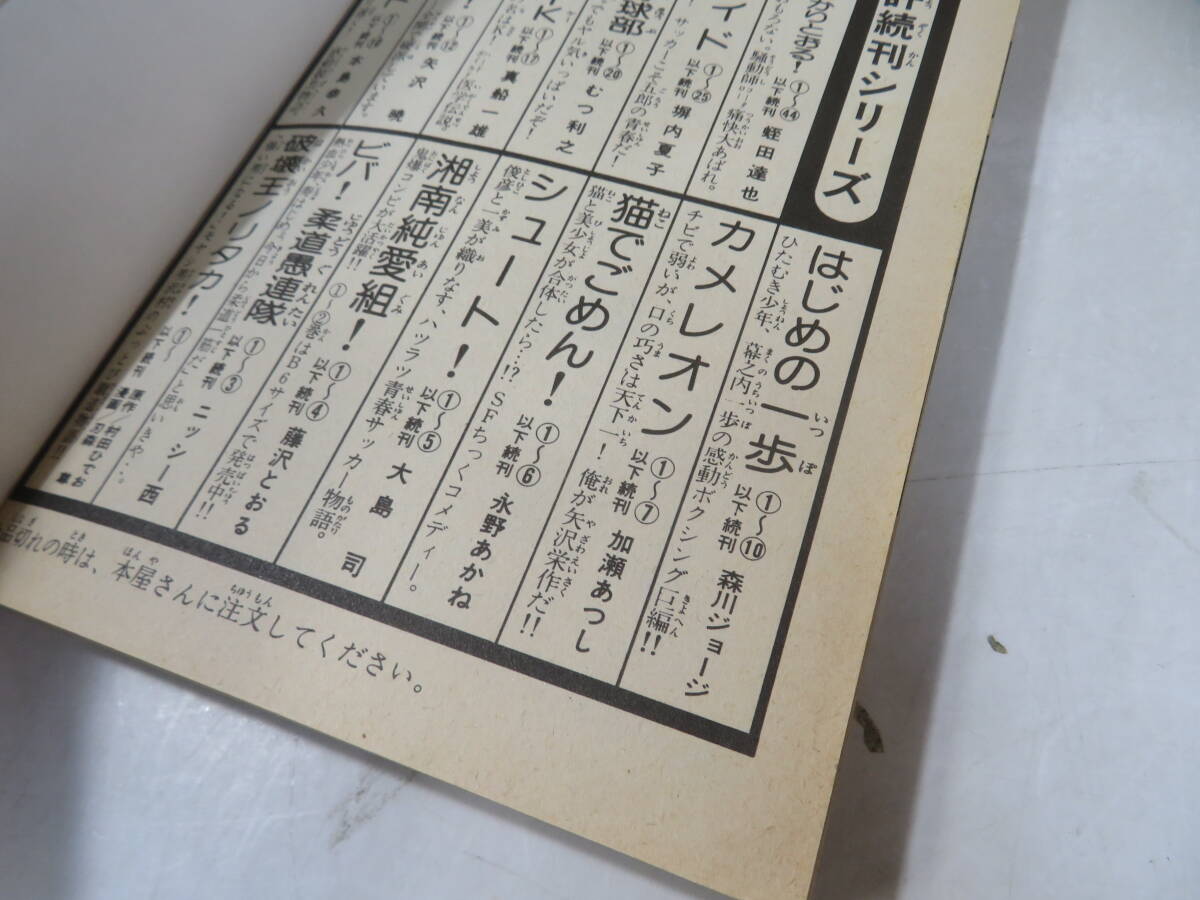 続刊シリーズ
はじめの一歩
①〜⑩
以下続刊
森川ジョージ
ひたむき少年、幕之内一歩の感動ボクシング巨編!!
カメレオン
①〜⑦
以下続刊
加瀬あつし
チビで弱いが、口の巧さは天下一!俺が矢沢栄作だ!!
猫でごめん!
①〜⑥
以下続刊
永野あかね
猫と美少女が合体したら…!? SFちっくコメディー。
シュート!
①〜⑤
以下続刊
大島 司
俊彦と一美が織りなす、ハツラツ青春サッカー物語。
湘南純愛組!
①〜④
以下続刊
藤沢とおる
鬼爆コンビが大活躍!! ①②巻はB6サイズで発売中!!
ビバ!柔道愚連隊
①〜③
以下続刊
ニッシー西
今日から柔道一筋だ!と思いきや…。
破壊王ノリタカ!
①〜
以下続刊
原作・村田ひでお
漫画・刃森 尊
①〜㊹
以下続刊
蛭田達也
痛快大あばれ。
①〜㉕
以下続刊
塀内夏子
サッカーこそ五郎の青春だ!
球部
①〜⑳
以下続刊
むつ利之
でもヤル気いっぱいだぞ!
K
①〜⑰
以下続刊
真船一雄
①〜⑫
以下続刊
矢沢 暁
本島幸久
品切れの時は、本屋さんに注文してください。